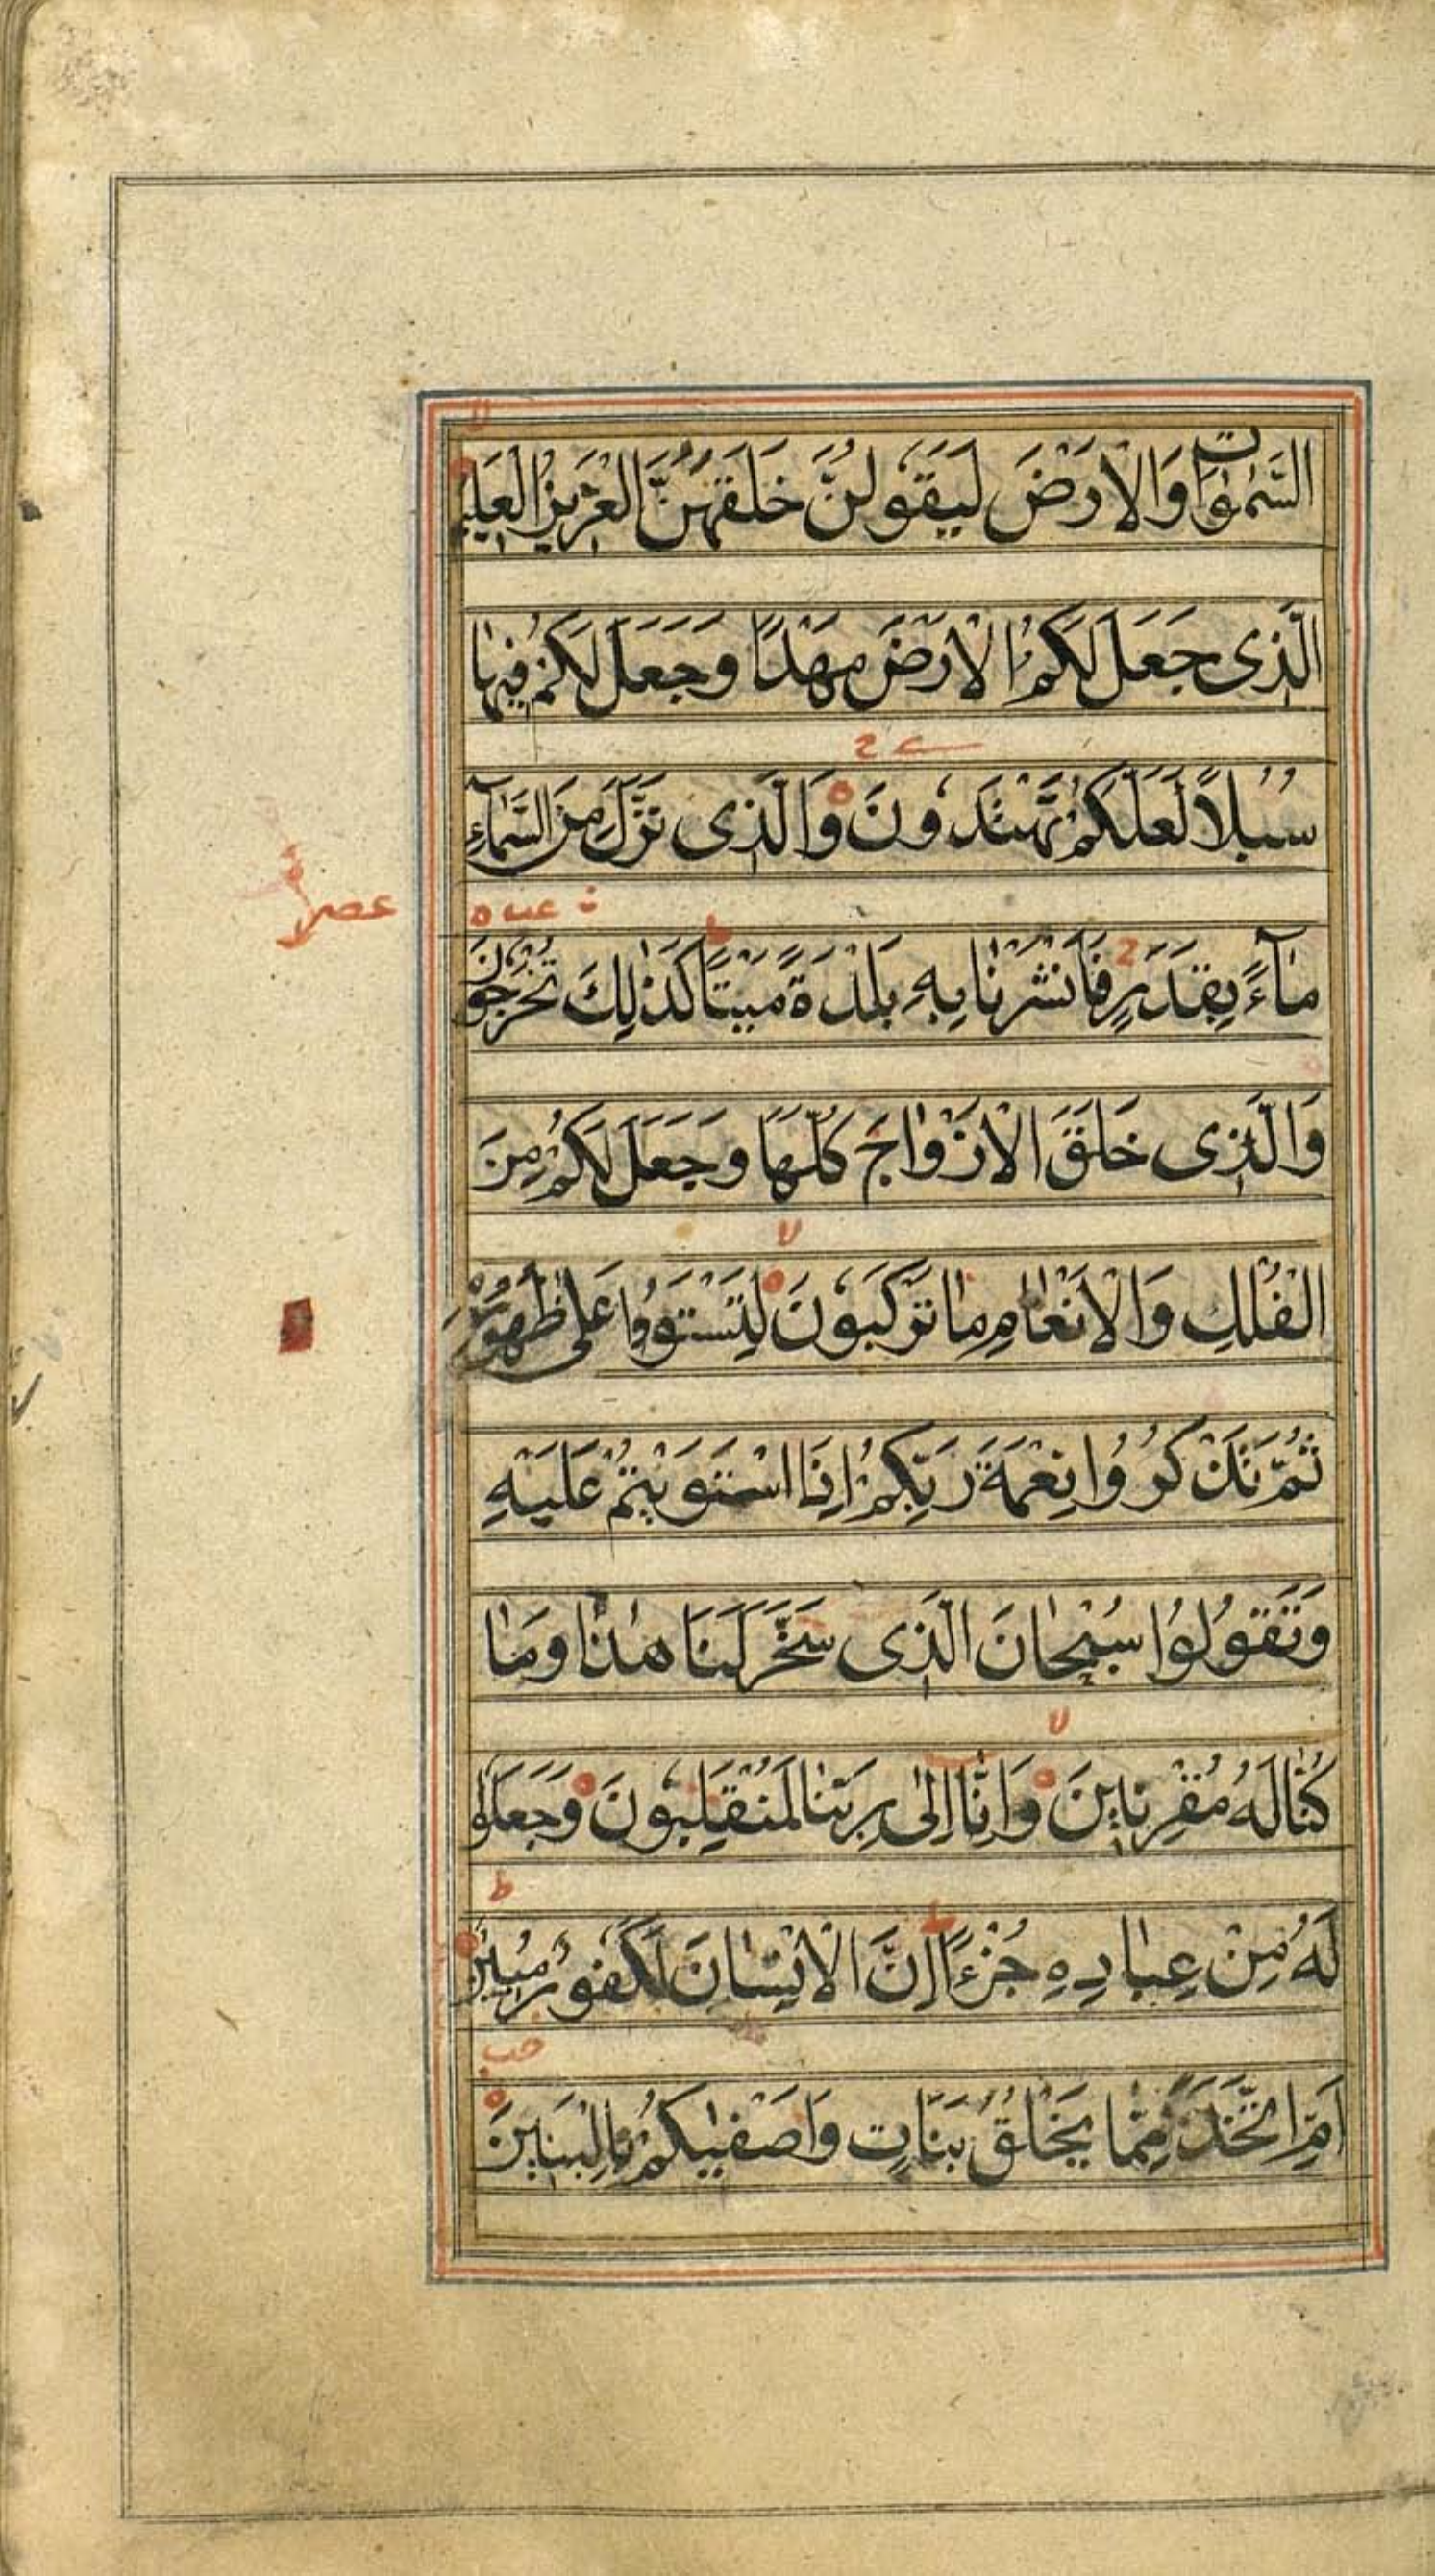 السَّمٰوٰاتِ وَالْاَرْضَ لَيَقُولُنَّ خَلَقَهُنَّ الْعَزِيزُ الْعَلِيمُ
الَّذِى جَعَلَ لَكُمُ الْاَرْضَ مَهْدًا وَجَعَلَ لَكُمْ فِيهٰا
سُبُلاً لَعَلَّكُمْ تَهْتَدُونَ وَالَّذِى نَزَّلَ مِنَ السَّمٰآءِ
مٰآءً بِقَدَرٍ فَاَنْشَرْنٰا بِهِ بَلْدَةً مَيْتًا كَذٰلِكَ تُخْرَجُونَ
وَالَّذِى خَلَقَ الْاَزْوٰاجَ كُلَّهٰا وَجَعَلَ لَكُمْ مِنَ
الْفُلْكِ وَالْاَنْعٰامِ مٰا تَرْكَبُونَ لِتَسْتَوُوا عَلٰى ظُهُورِهِ
ثُمَّ تَذْكُرُوا نِعْمَةَ رَبِّكُمْ اِذَا اسْتَوَيْتُمْ عَلَيْهِ
وَتَقُولُوا سُبْحٰانَ الَّذِى سَخَّرَ لَنَا هٰذٰا وَمٰا
كُنّٰا لَهُ مُقْرِنِينَ وَاِنّٰا اِلٰى رَبِّنٰا لَمُنْقَلِبُونَ وَجَعَلُوا
لَهُ مِنْ عِبٰادِهِ جُزْءًا اِنَّ الْاِنْسٰانَ لَكَفُورٌ مُبِينٌ
اَمِ اتَّخَذَ مِمّٰا يَخْلُقُ بَنَاتٍ وَاَصْفٰيكُمْ بِالْبَنِينَ